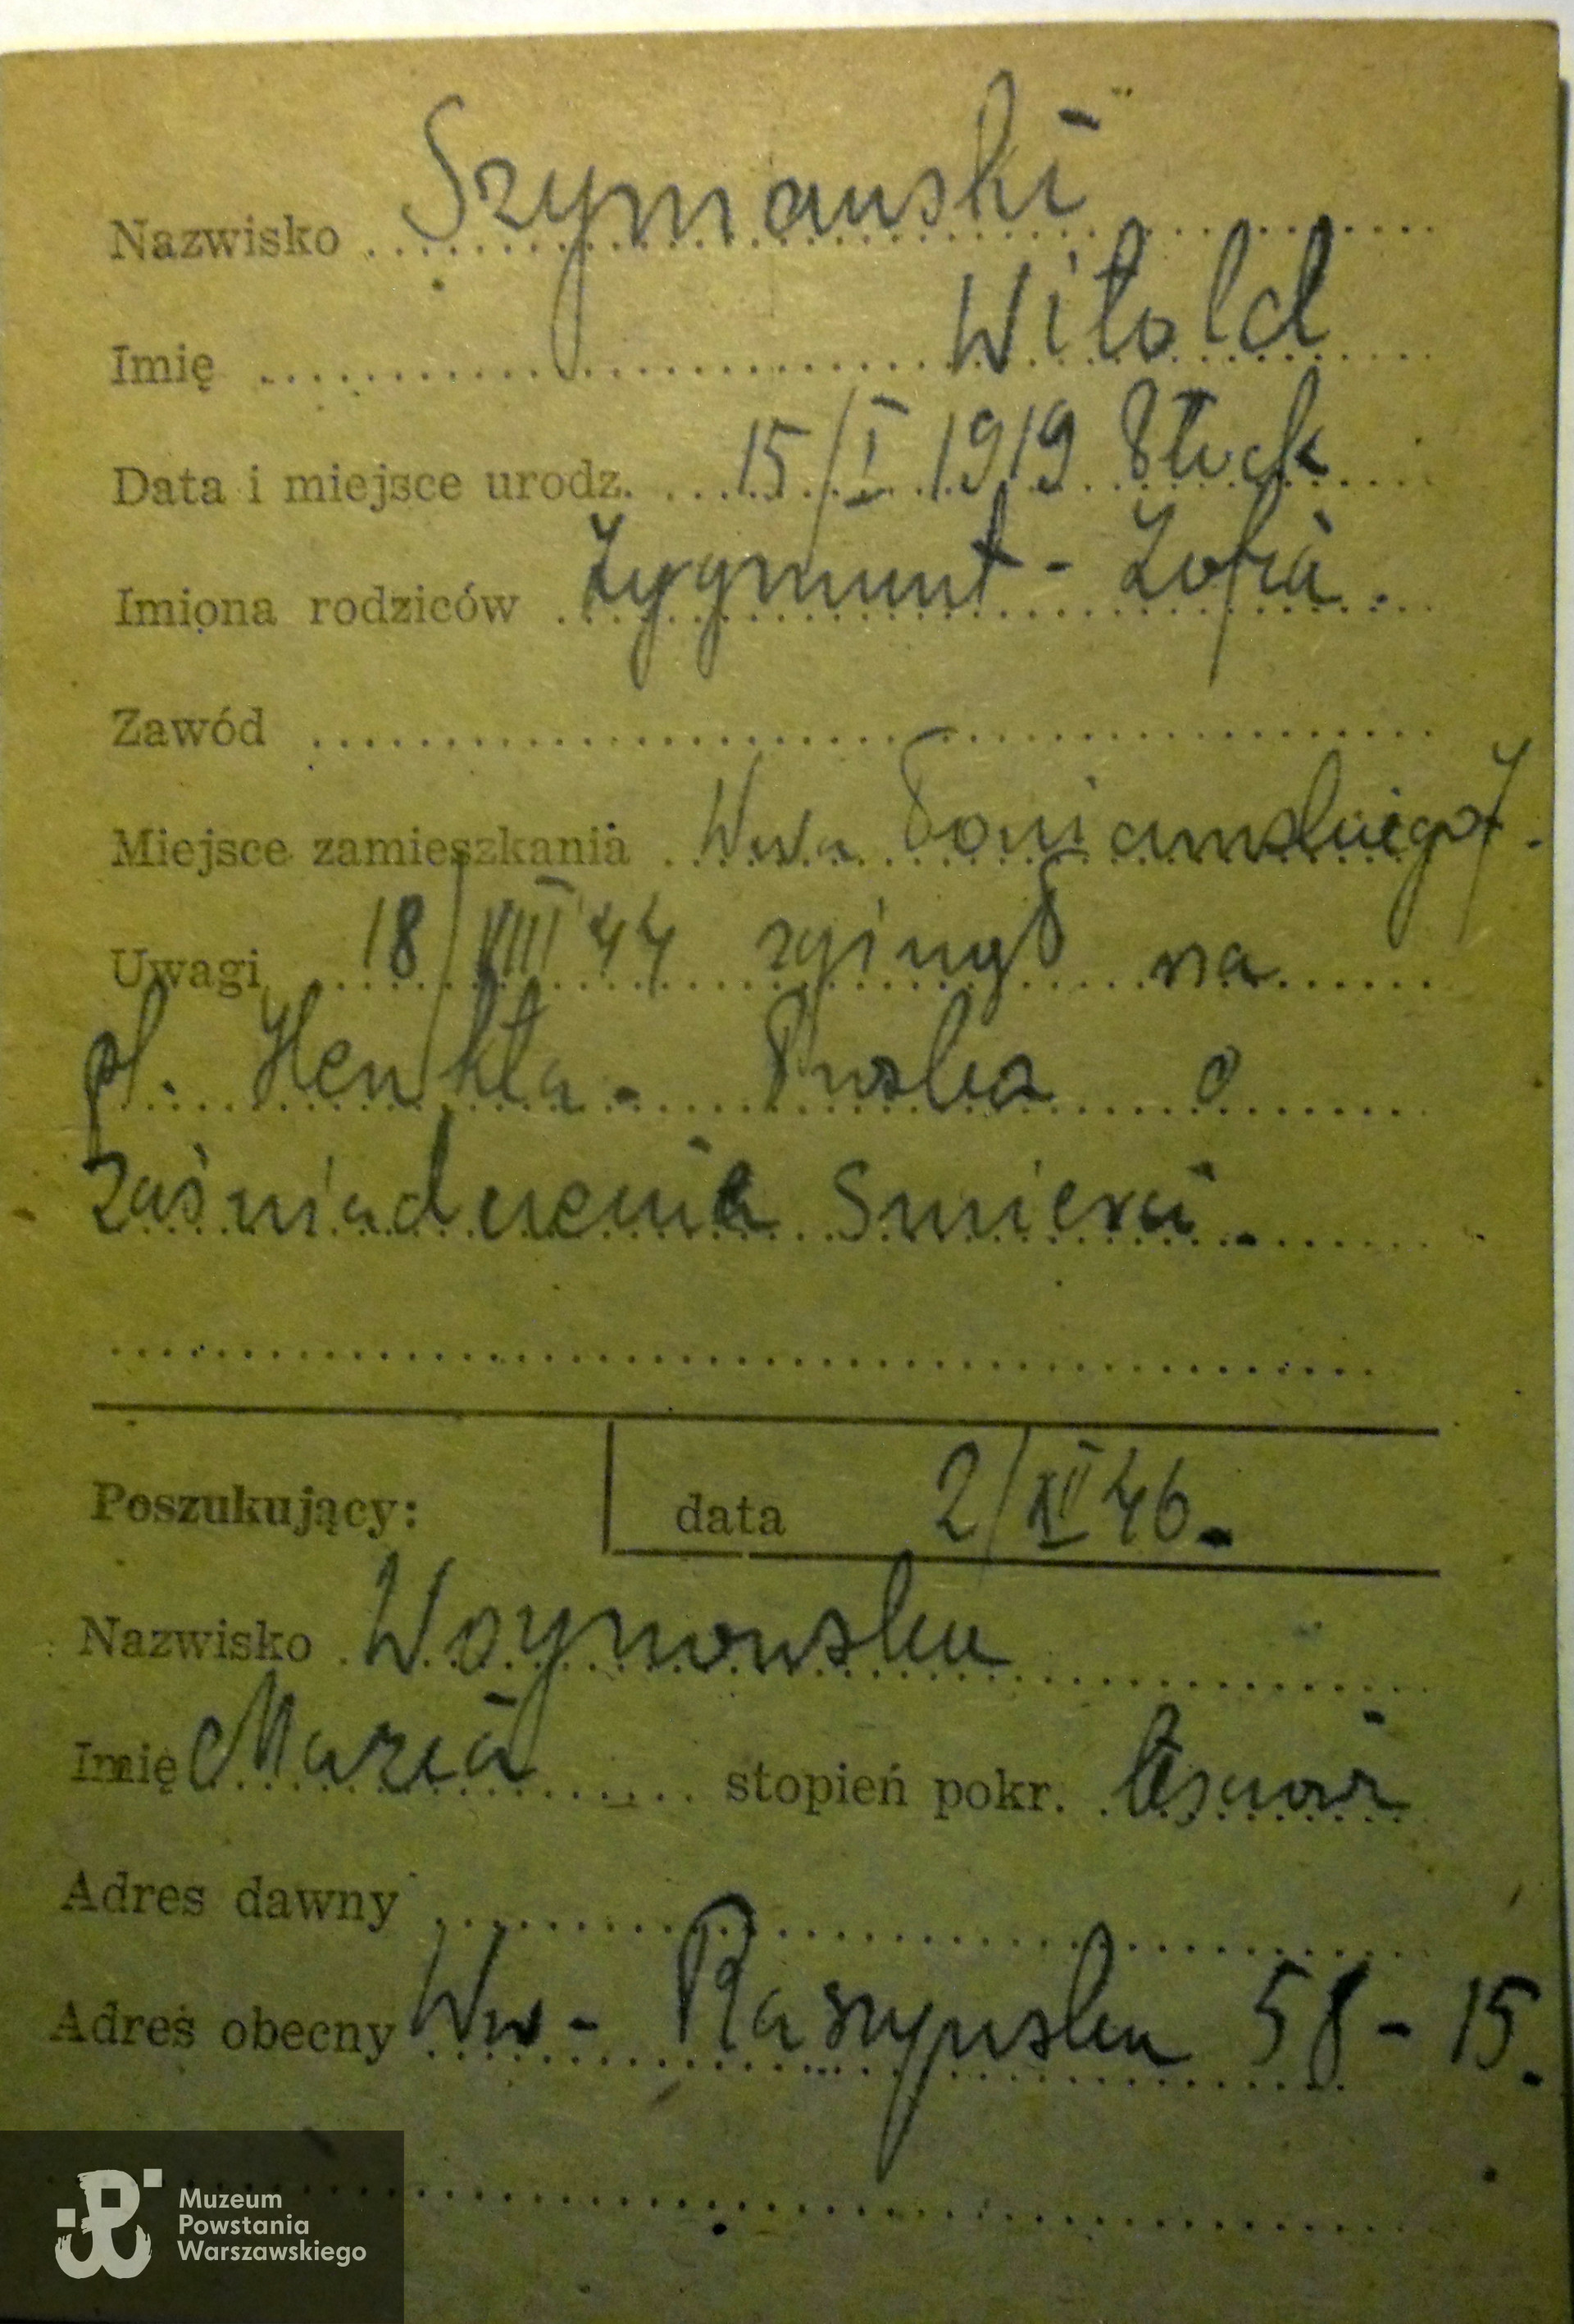 Nazwisko Szymanski
Imię Witold
Data i miejsce urodz. 15/I 1919 Słuck
Imiona rodziców Zygmunt - Zofia.
Zawód
Miejsce zamieszkania Wwa
Uwagi 18/VIII 44 zginął na
pl. Henkla. Prośba o
zaświadczenie smierci.
Poszukujący: data 2/XII 46.
Nazwisko Woynowska
Imię Maria stopień pokr.
Adres dawny
Adres obecny Ww - Raszyńska 58 - 15.
Muzeum
Powstania
Warszawskiego